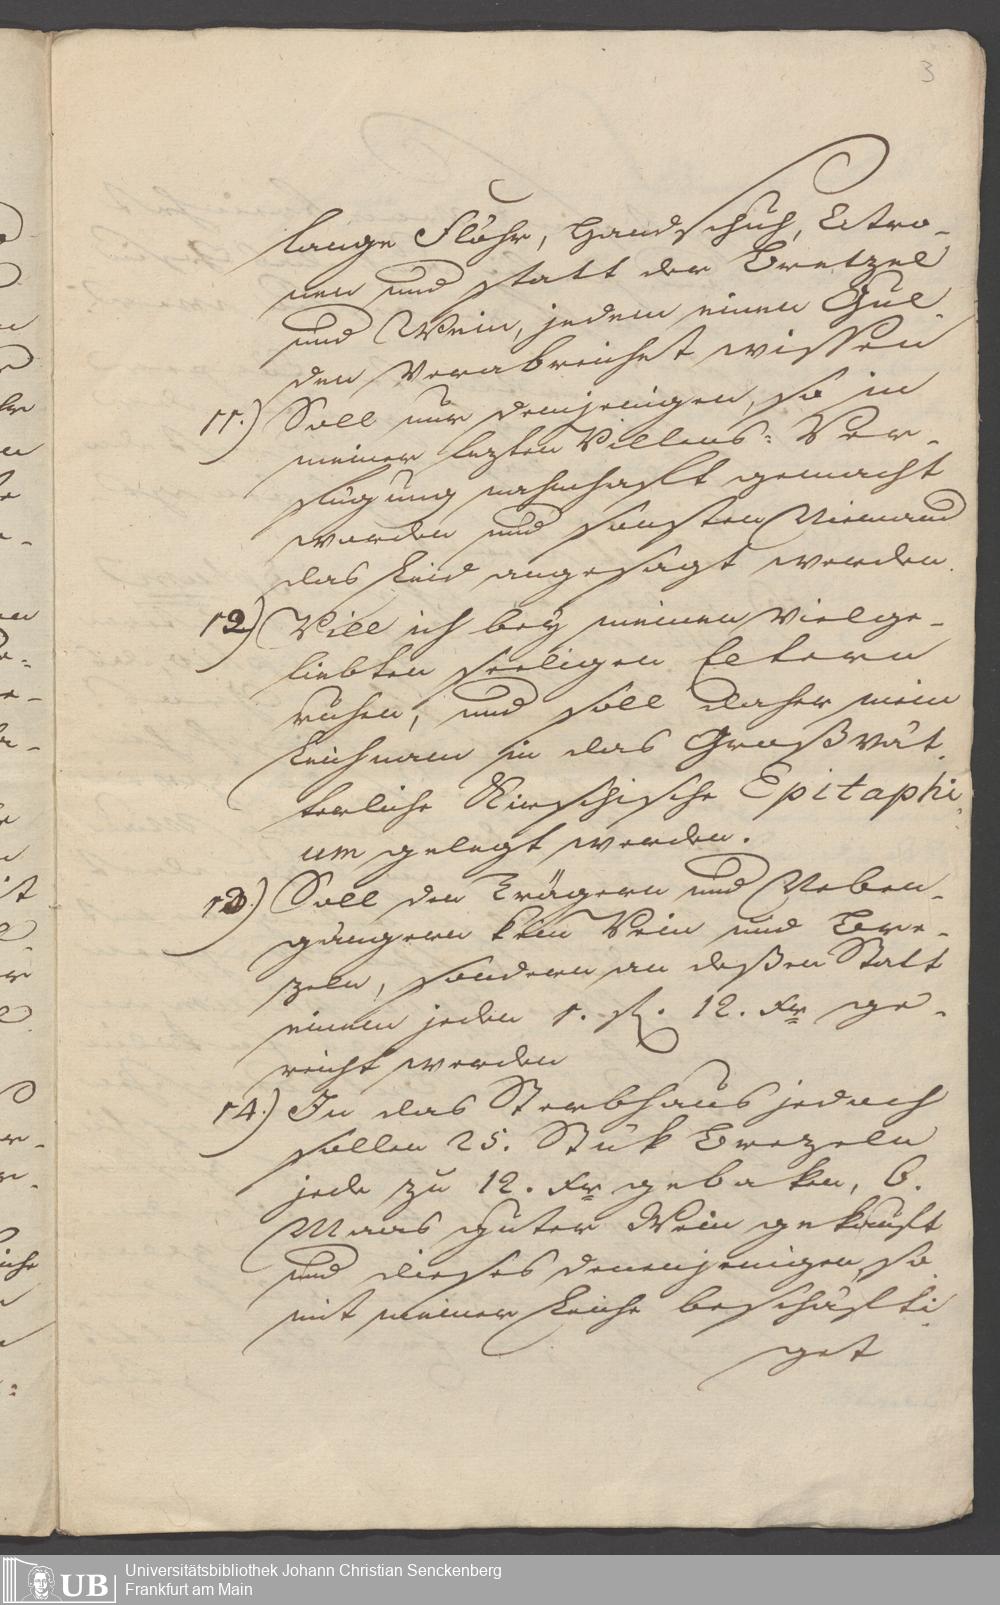 3
lange Flöhr, Handschuh, Citro-
nen und statt der Bretzel
und Wein, jedem einen Gul-
den verabreichet wissen
11.) Soll nur denjenigen, so in
meiner lezten Willens: Ver-
fügung nahmhafft gemacht
worden und sonsten Niemand
das Leid angesagt werden.
12) Will ich bey meinen vielge-
liebten seeligen Eltern
ruhen, und soll daher mein
Leichnam in das Großvät-
terliche Epitaphi-
um gelegt werden.
13.) Soll den Trägern und Neben-
gängern kein Wein und Bre-
zeln, sondern an deßen Statt
einem jeden 1. fl. 12. Xr ge-
reicht werden
14.) In das Sterbhaus jedoch
sollen 25. Stük Brezeln
jede zu 12. Xr gebaken, 6.
Maas guter Wein gekaufft
und dieses denenjenigen, so
mit meiner Leiche beschäffti-
get
Universitätsbibliothek Johann Christian Senckenberg
Frankfurt am Main
UB